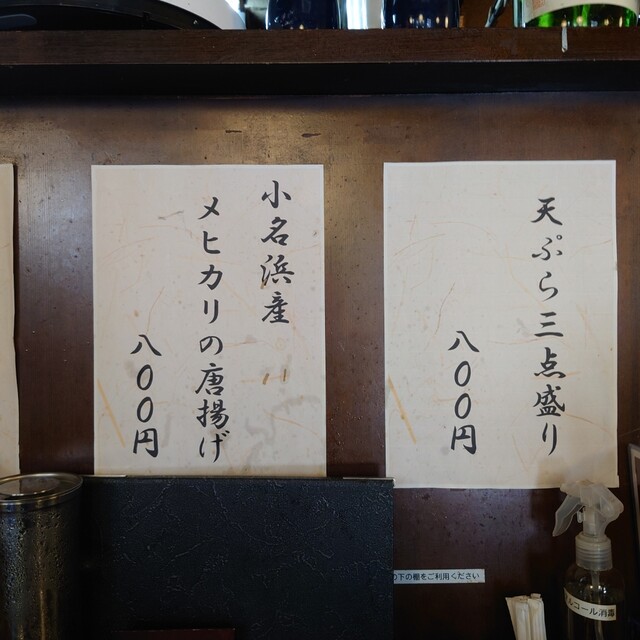 天ぷら三点盛り
八〇〇円
小名浜産
メヒカリの唐揚げ
八〇〇円
の下の棚をご利用ください
ルコール消毒